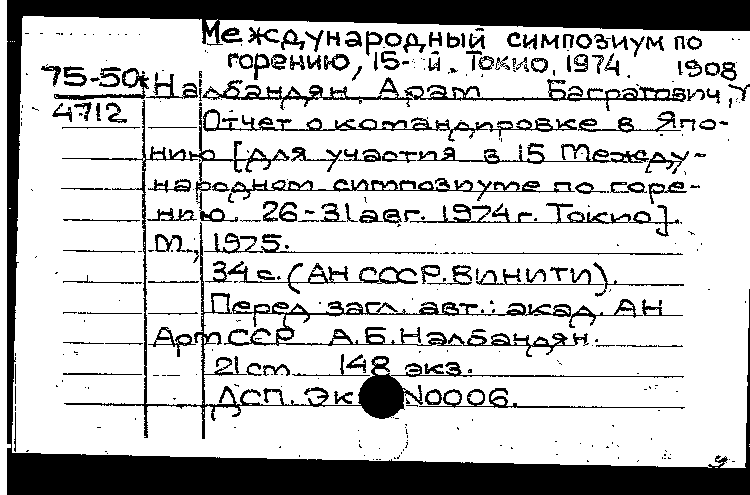 Международный симпозиум по
горению, 15-й. Токио, 1974. 1908
75-50*
4712
Налбандян, Арам Багратович, У
Отчет о командировке в Япо-
нию [для участия в 15 Между-
народном симпозиуме по горе-
нию. 26-31 авг. 1974 г. Токио].
М., 1975.
34 с. (АН СССР. ВИНИТИ).
Перед загл. авт.: акад. АН
Арм.ССР А.Б. Налбандян.
21 см. 148 экз.
ДСП. Эк N0006.
у